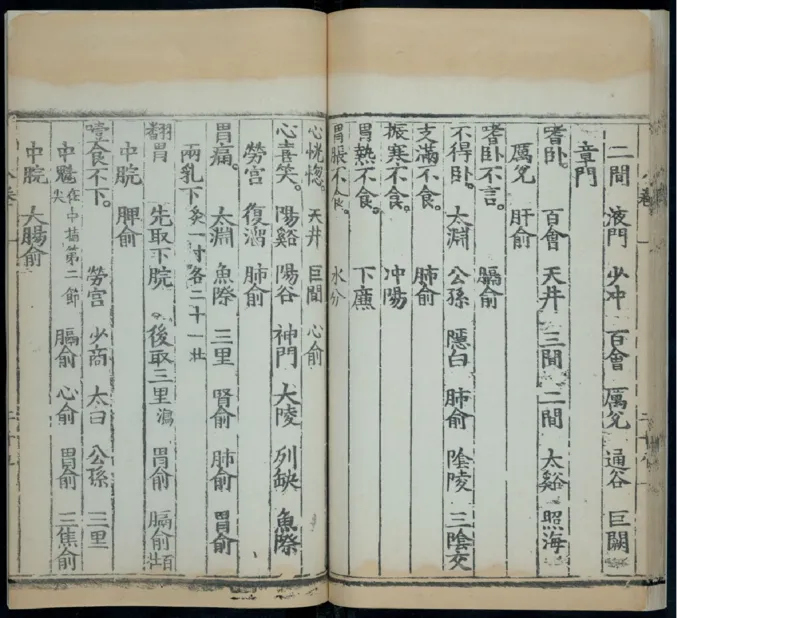 二間 液門 少冲 百會 厲兊 通谷 巨闕
章門
嗜卧。 百會 天井 三間 二間 太谿 照海
厲兊 肝俞
嗜卧不言。 膈俞
不得卧。 太淵 公孫 隱白 肺俞 陰陵 三陰交
支滿不食。 肺俞
振寒不食。 冲陽
胃熱不食。 下廉
胃脹不食。 水分
心恍惚。 天井 巨闕 心俞
心喜笑。 陽谿 陽谷 神門 大陵 列缺 魚際
勞宮 復溜 肺俞
胃痛。 太淵 魚際 三里 腎俞 肺俞 胃俞
兩乳下 灸一寸各二十一壯
翻胃 先取下脘。後取三里瀉 胃俞 膈俞百壯
中脘 脾俞
噎食不下。 勞宮 少商 太白 公孫 三里
中魁在中指第二節尖 膈俞 心俞 胃俞 三焦俞
中脘 大腸俞